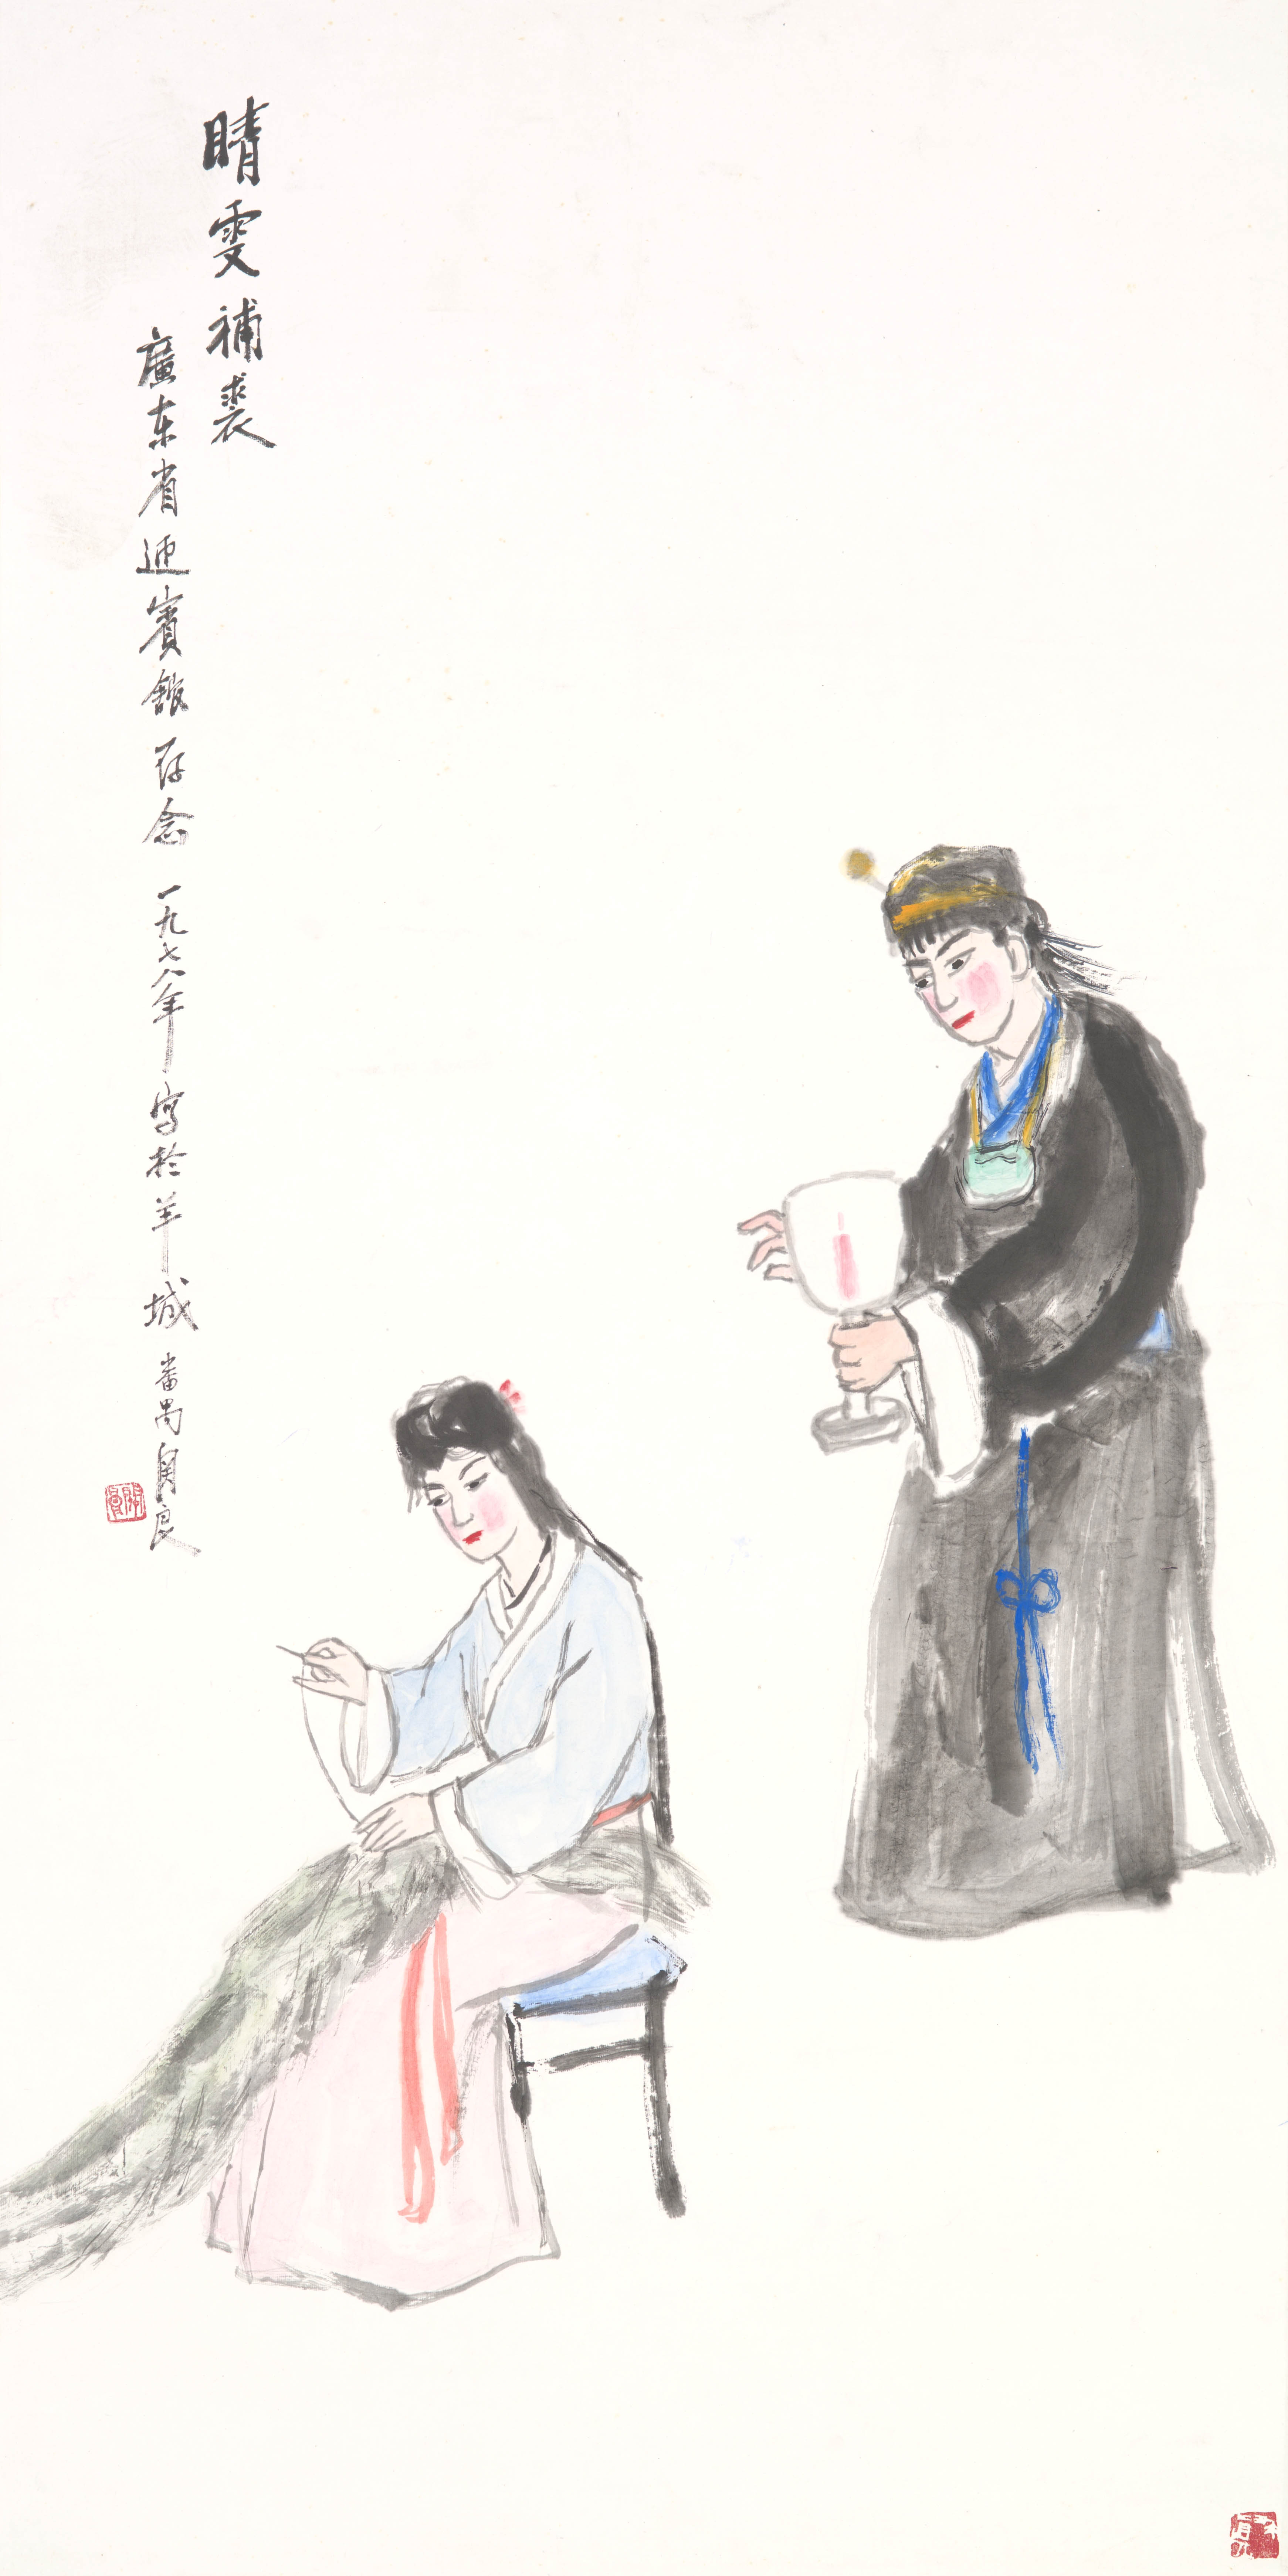 晴雯補裘
廣东省迎賓館存念 一九七八年寫於羊城 番禺良